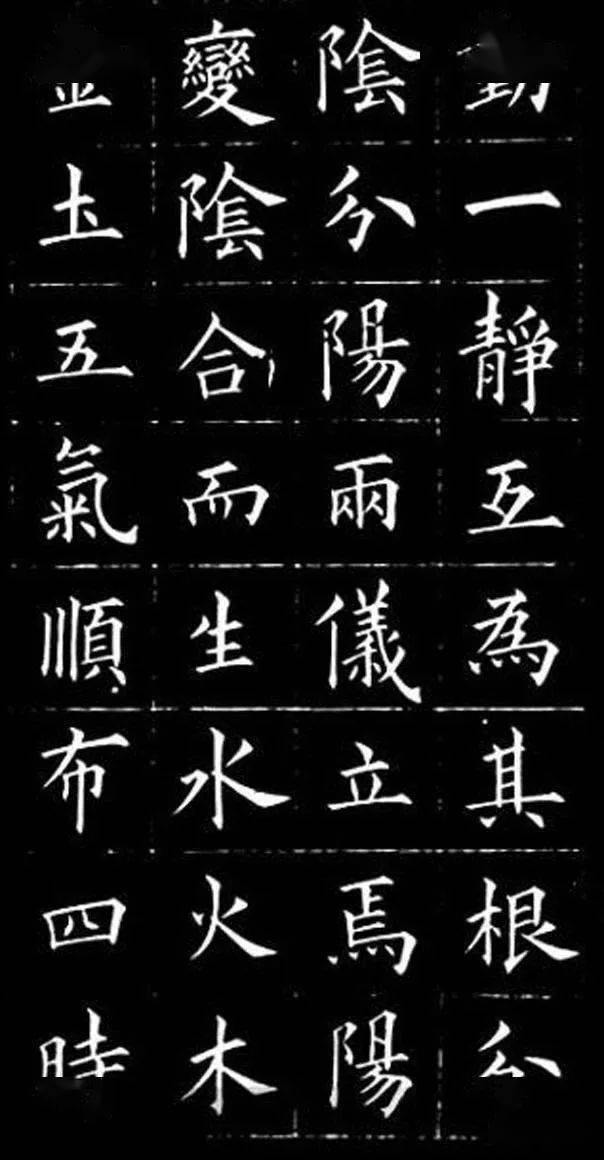 動一靜互為其根分
陰分陽兩儀立焉陽
變陰合而生水火木
金土五氣順布四時